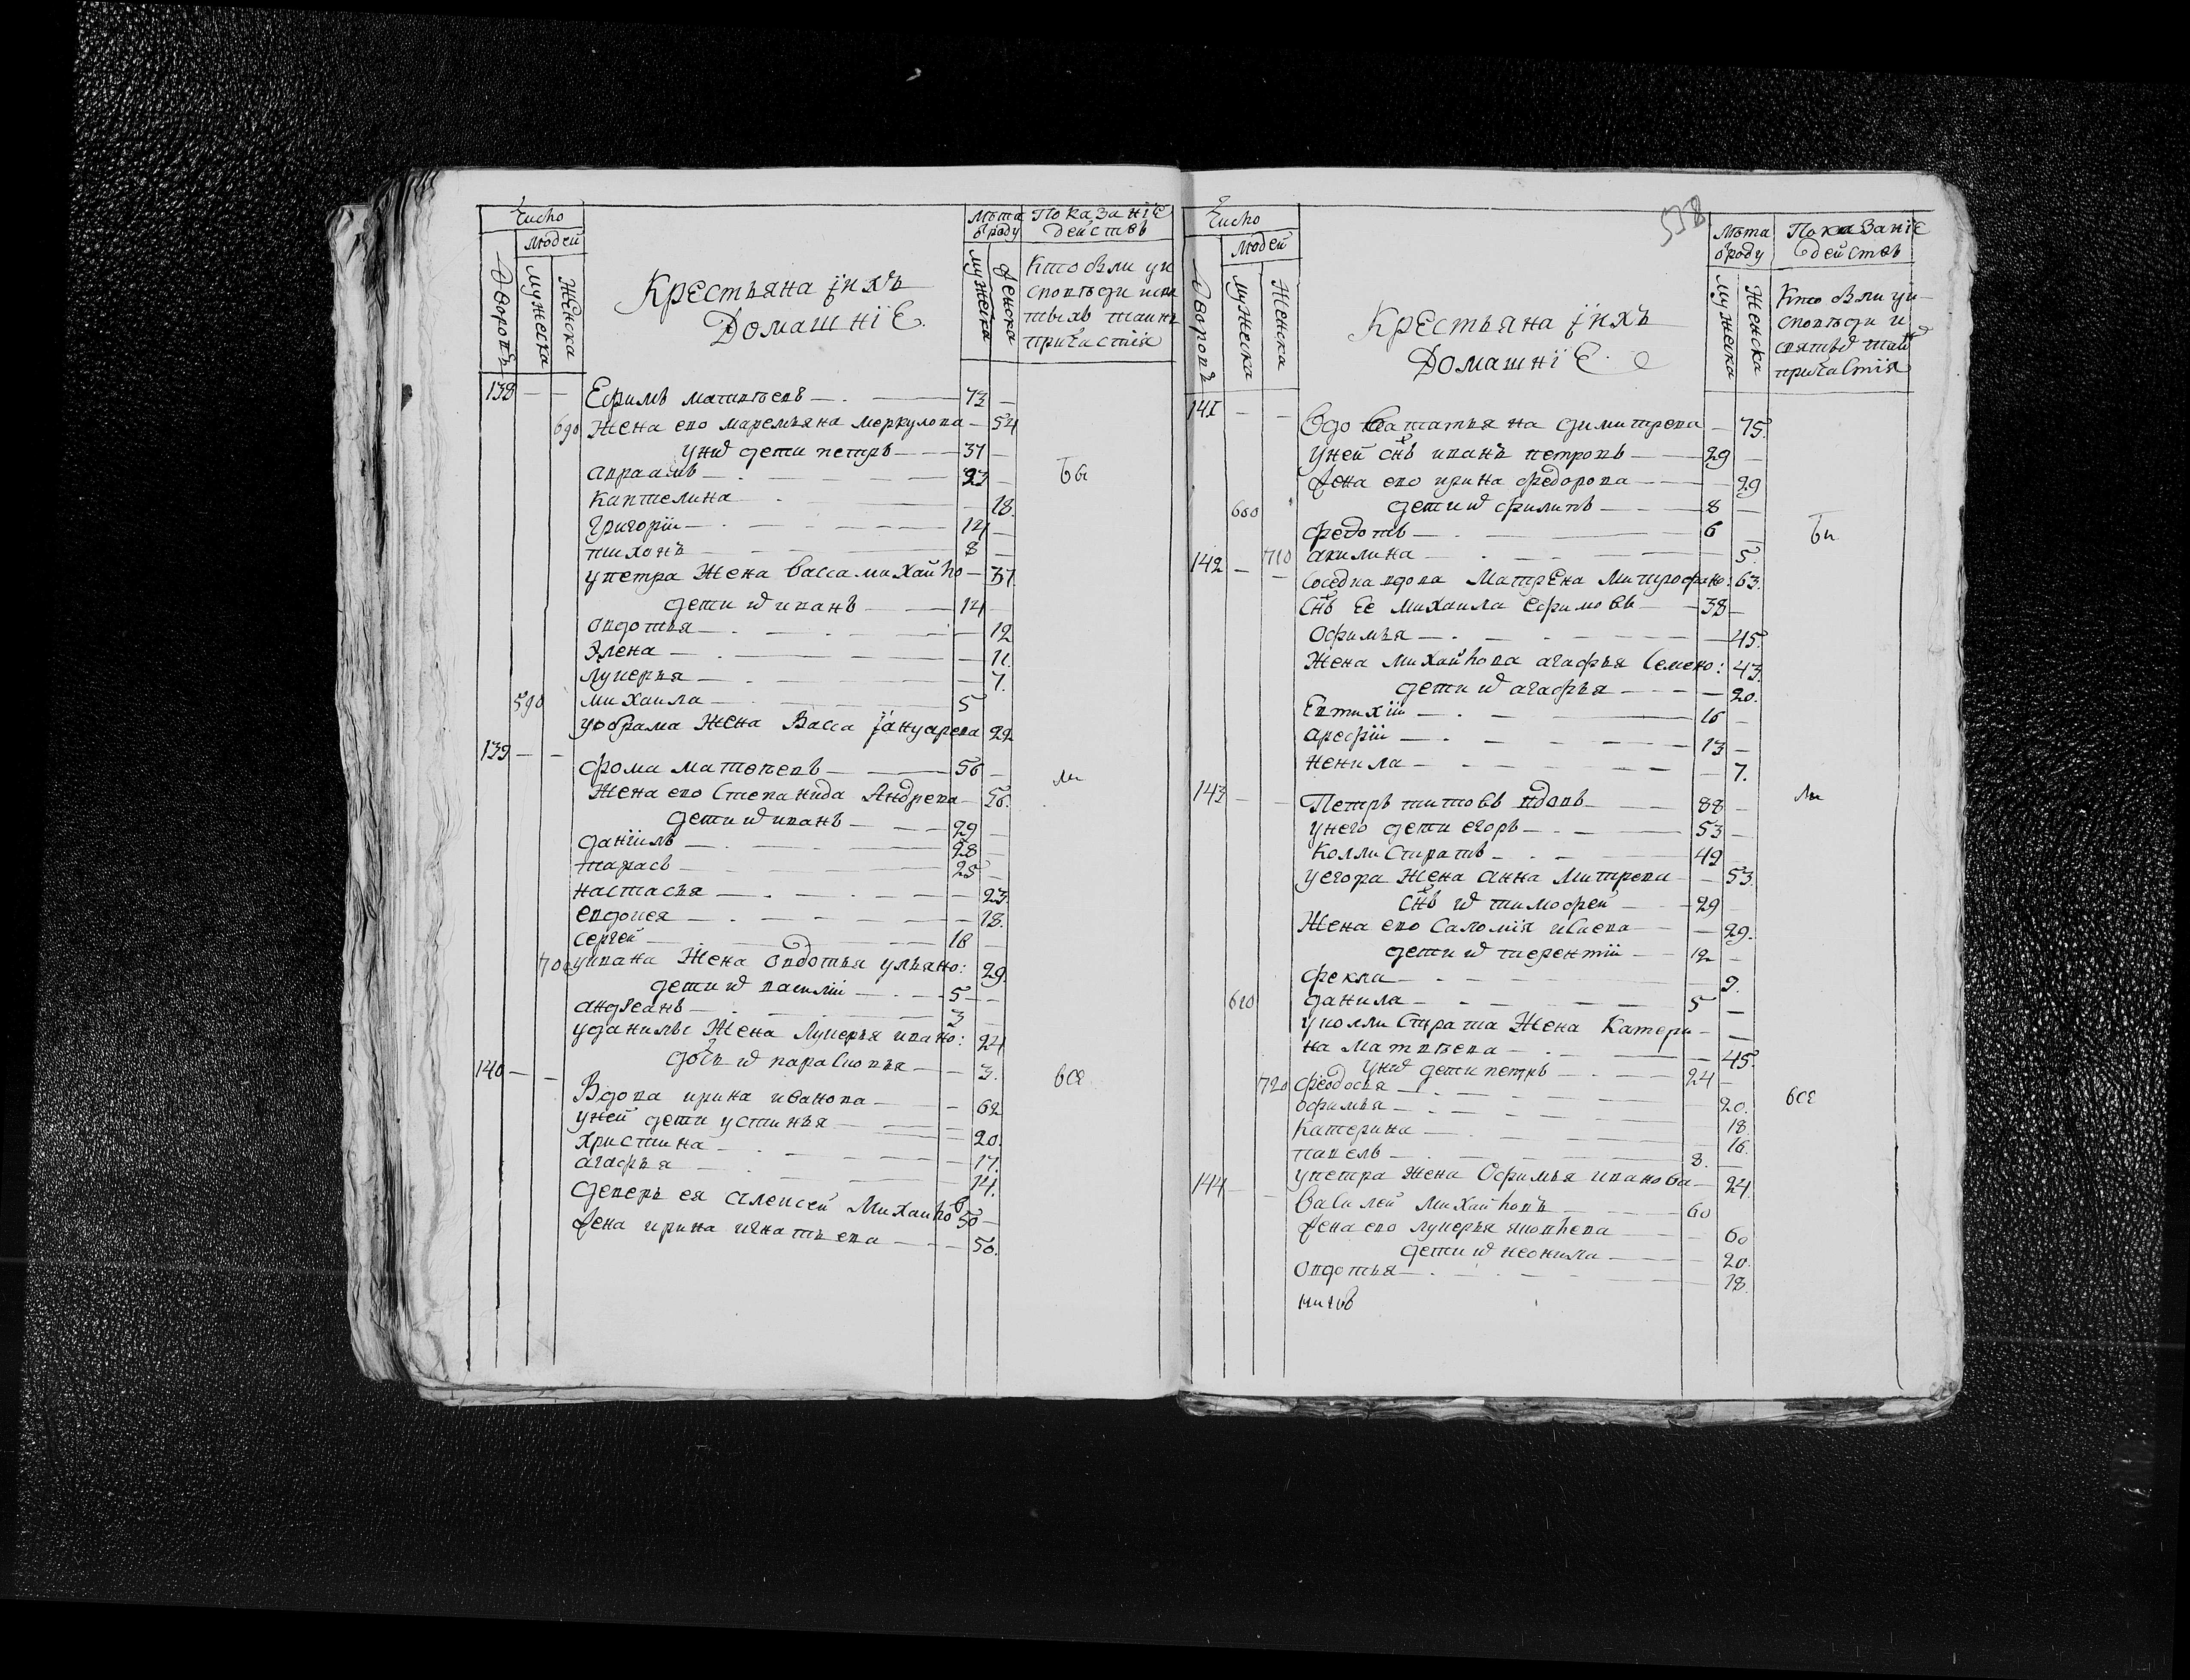 Число
Людей
Дворовъ
Мужеска
Женска
Крестьяна їихъ
Домашніе
Лѣта
ѿроду
Мужеска
Женска
Показаніе
действъ
Кто были уи
сповѣди исвя
тыхъ таинъ
причастія
138 — — Ефимъ матвѣевъ — 73 —
690 Жена ево маремьяна меркулова — 54
униѿ дети петръ — 37 —
авраамъ — 23 —
каптелина — 18.
григоріи — 14 —
тихонъ — 8 —
упетра Жена васса михайло — 37
дети ѿ иванъ — 14 —
овдотья — 12
Элена — 11.
лукерья — 7.
590 михаила — 5
уобрама Жена Васса їануарева 22
139 — — фома матвеевъ — 56 —
Жена ево Степанида Андрева — 56.
дети ѿ иванъ — 29 —
даніилъ — 28 —
тарасъ — 25 —
настасья — 23.
евдокея — 18.
сергей — 16 —
700 уивана Жена овдотья ульяно: 29.
дети ѿ василіи — 5 —
андреанъ — 3
уданилы Жена Лукерья ивано: 24
дочь ѿ парасковья — 3.
140 — — Вдова ирина иванова — 62
уней дети устинья — 20.
христина — 17.
агафья — 14.
деверь ея алексей Михайло 50 —
Жена ирина игнатьева — 50.
Бы
ли
все
538
Число
Людей
Дворовъ
Мужеска
Женска
Крестьяна їихъ
Домашніе
Лѣта
ѿроду
Мужеска
Женска
Показаніе
действъ
Кто были уи
сповѣди и
святыѿ таиѿ
причастія
141 — — Вдо ва татьяна димитрева — 75.
уней снъ иванъ петровъ — 29 —
Жена ево ирина федорова — 29
600 дети ѿ филипъ — 8 —
федотъ — 6 —
710 акилина — 5.
142 — — Соседка вдова Матрена Митрофано: 63.
Снъ Ее михаила ефимовъ — 38 —
офимья — 45.
Жена михайлова агафья Семено: 43.
дети ѿ агафья — 20.
Евтихіи — 16 —
арефіи — 13 —
ненила — 7.
143 — — Петръ титовъ вдовъ — 88 —
унего дети егоръ — 53 —
Каллистратъ — 49
уегора Жена анна Митрева — 53.
снъ ѿ тимофеи — 29 —
Жена ево Саломія исаева — 29.
дети ѿ терентіи — 12 —
фекла — 9.
610 данила — 5 —
укаллистрата Жена Катери — —
на матвѣева — 45.
униѿ дети петръ — 24 —
720 феодосья — 20.
офимья — 18
катерина — 16.
павелъ — 8. —
упетра Жена Офимья иванова — 24.
144 — — василей михайловъ — 60
Жена ево лукерья яковлева — 60
дети ѿ неонила — 20.
овдотья — 18.
Бы
ли
все